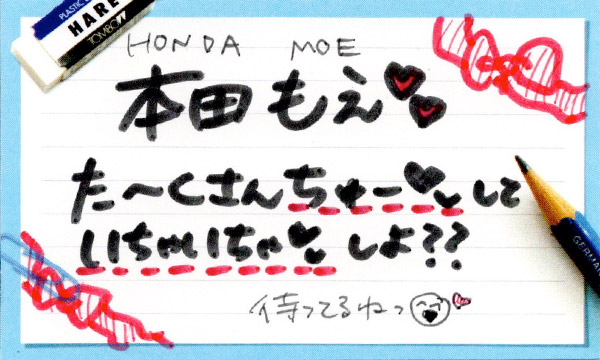 PLASTIC
HARE
TOMBOW
HONDA MOE
本田もえ♥♥
た〜くさんちゅー♥♥して
いちゃいちゃ♥♥しよ??
待ってるねっ
GERMAN